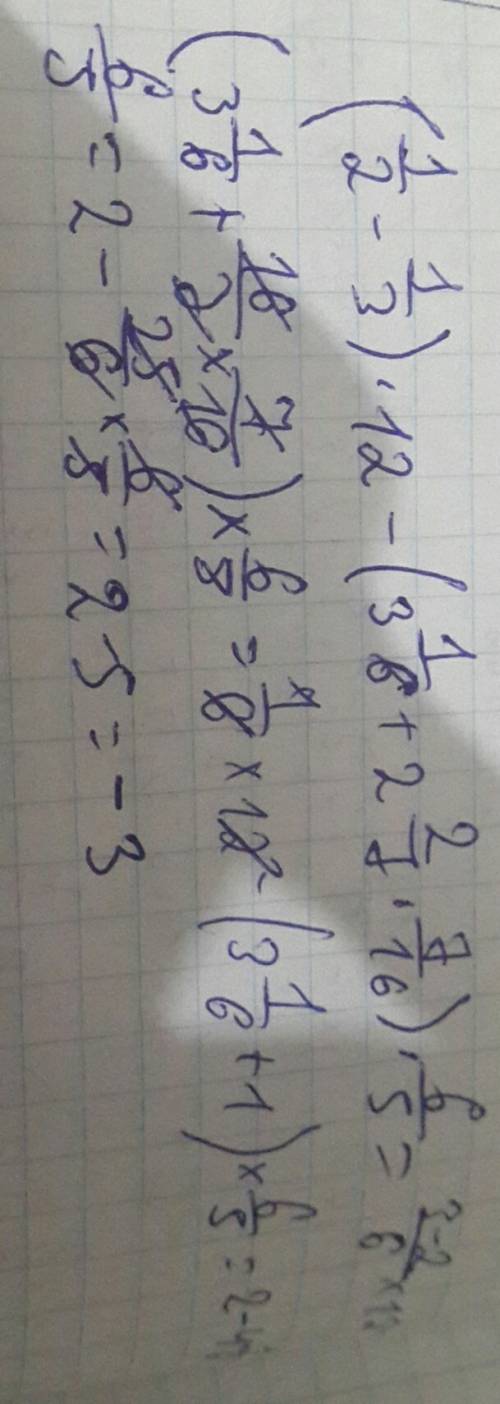 (1/2 - 1/3) · 12 - (3 1/6 + 2 2/7 · 7/16) · 6/5 = 3-2/6 × 12
(3 1/6 + 16/7 × 7/16) × 6/5 = 1/6 × 12 - (3 1/6 + 1) × 6/5 = 2 - 4
6/5 = 2 - 25/6 × 6/5 = 2 5 = - 3